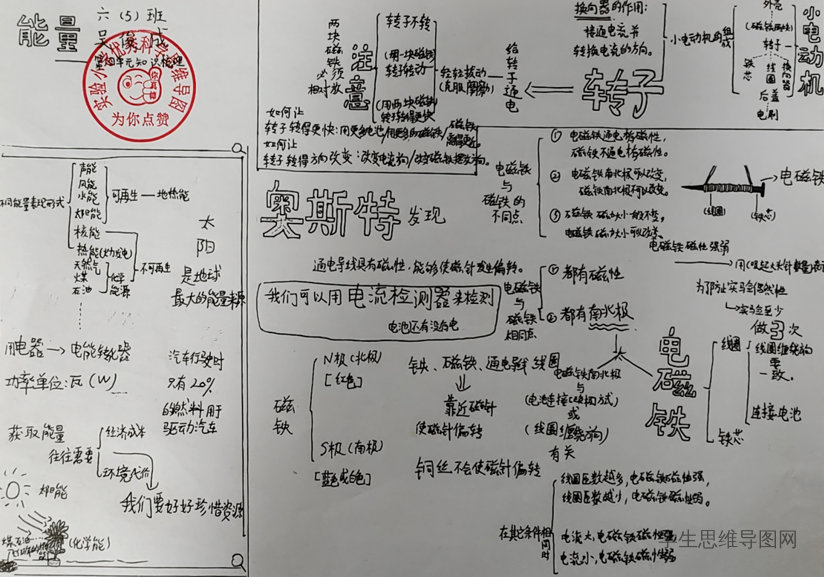 能量
六（5）班
第四单元知识梳理
实验小学优秀科学思维导图
为你点赞
两块磁铁必须相对放
注意
转子不转
(用一块磁铁)
转子转动
(用两块磁铁)
转子转得更快
轻轻拨动
(克服摩擦)
给转子通电
转子
换向器的作用：
接通电流并
转换电流的方向。
小电动机的组成
外壳
(磁铁两块)
转子
铁芯
线圈
换向器
后盖
电刷
小电动机
如何让
转子转得更快：用更多电池/用更多的磁铁/
如何让
转子转得方向改变：改变电流方向/改变磁铁摆放方向。
不同能量表现形式
声能
风能
水能
太阳能
核能
热能(火力发电)
天然气
煤
石油
可再生—地热能
不可再生
化学能源
太阳
是地球
最大的能量来源
用电器→电能转化器
功率单位：瓦(W)
汽车行驶时
只有20%
的燃料用于
驱动汽车
获取能量
往往需要
经济成本
环境代价
我们要好好珍惜资源
太阳能
煤石油
(化学能)
奥斯特发现
通电导线具有磁性，能够使磁针发生偏转。
我们可以用电流检测器来检测
电池还有没有电
电磁铁与磁铁的不同点
① 电磁铁通电有磁性，
磁铁不通电有磁性。
② 电磁铁南北极可以改变，
磁铁南北极不可以改变。
③ 磁铁磁力大小一般不变。
电磁铁磁力大小可以改变。
电磁铁
(线圈)
(铁芯)
电磁铁磁性强弱
→实验至少
做3次
电磁铁与磁铁相同点
①都有磁性
②都有南北极
电磁铁南北极
与
(电池连接的方式)
或
(线圈缠绕方向)
有关
电磁铁
线圈
铁芯
线圈缠绕方向要一致。
连接电池
磁铁
N极(北极)
[红色]
S极(南极)
[蓝色或白色]
铁、磁铁、通电导线线圈
靠近磁针
使磁针偏转
铜丝不会使磁针偏转
在其它条件相同时
线圈匝数越多，电磁铁磁性强，
线圈匝数越少，电磁铁磁性弱。
电流大，电磁铁磁性强
电流小，电磁铁磁性弱
学生思维导图网